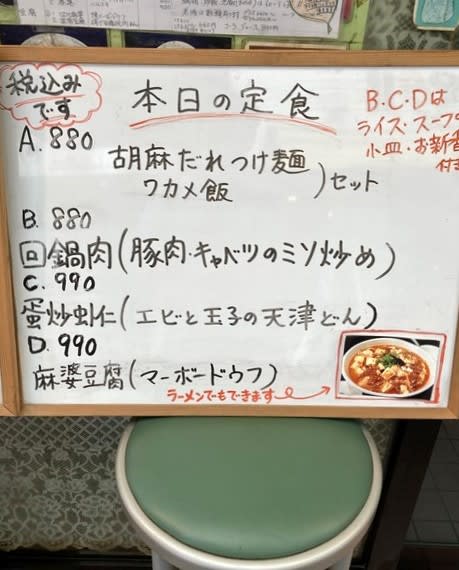 税込み
です
本日の定食
B・C・Dは
ライス・スープ
小皿・お新香
付
A. 880
胡麻だれつけ麺
ワカメ飯
)セット
B. 880
回鍋肉(豚肉・キャベツのミソ炒め)
C. 990
蛋炒虾仁(エビと玉子の天津どん)
D. 990
麻婆豆腐(マーボードウフ)
ラーメンでもできます